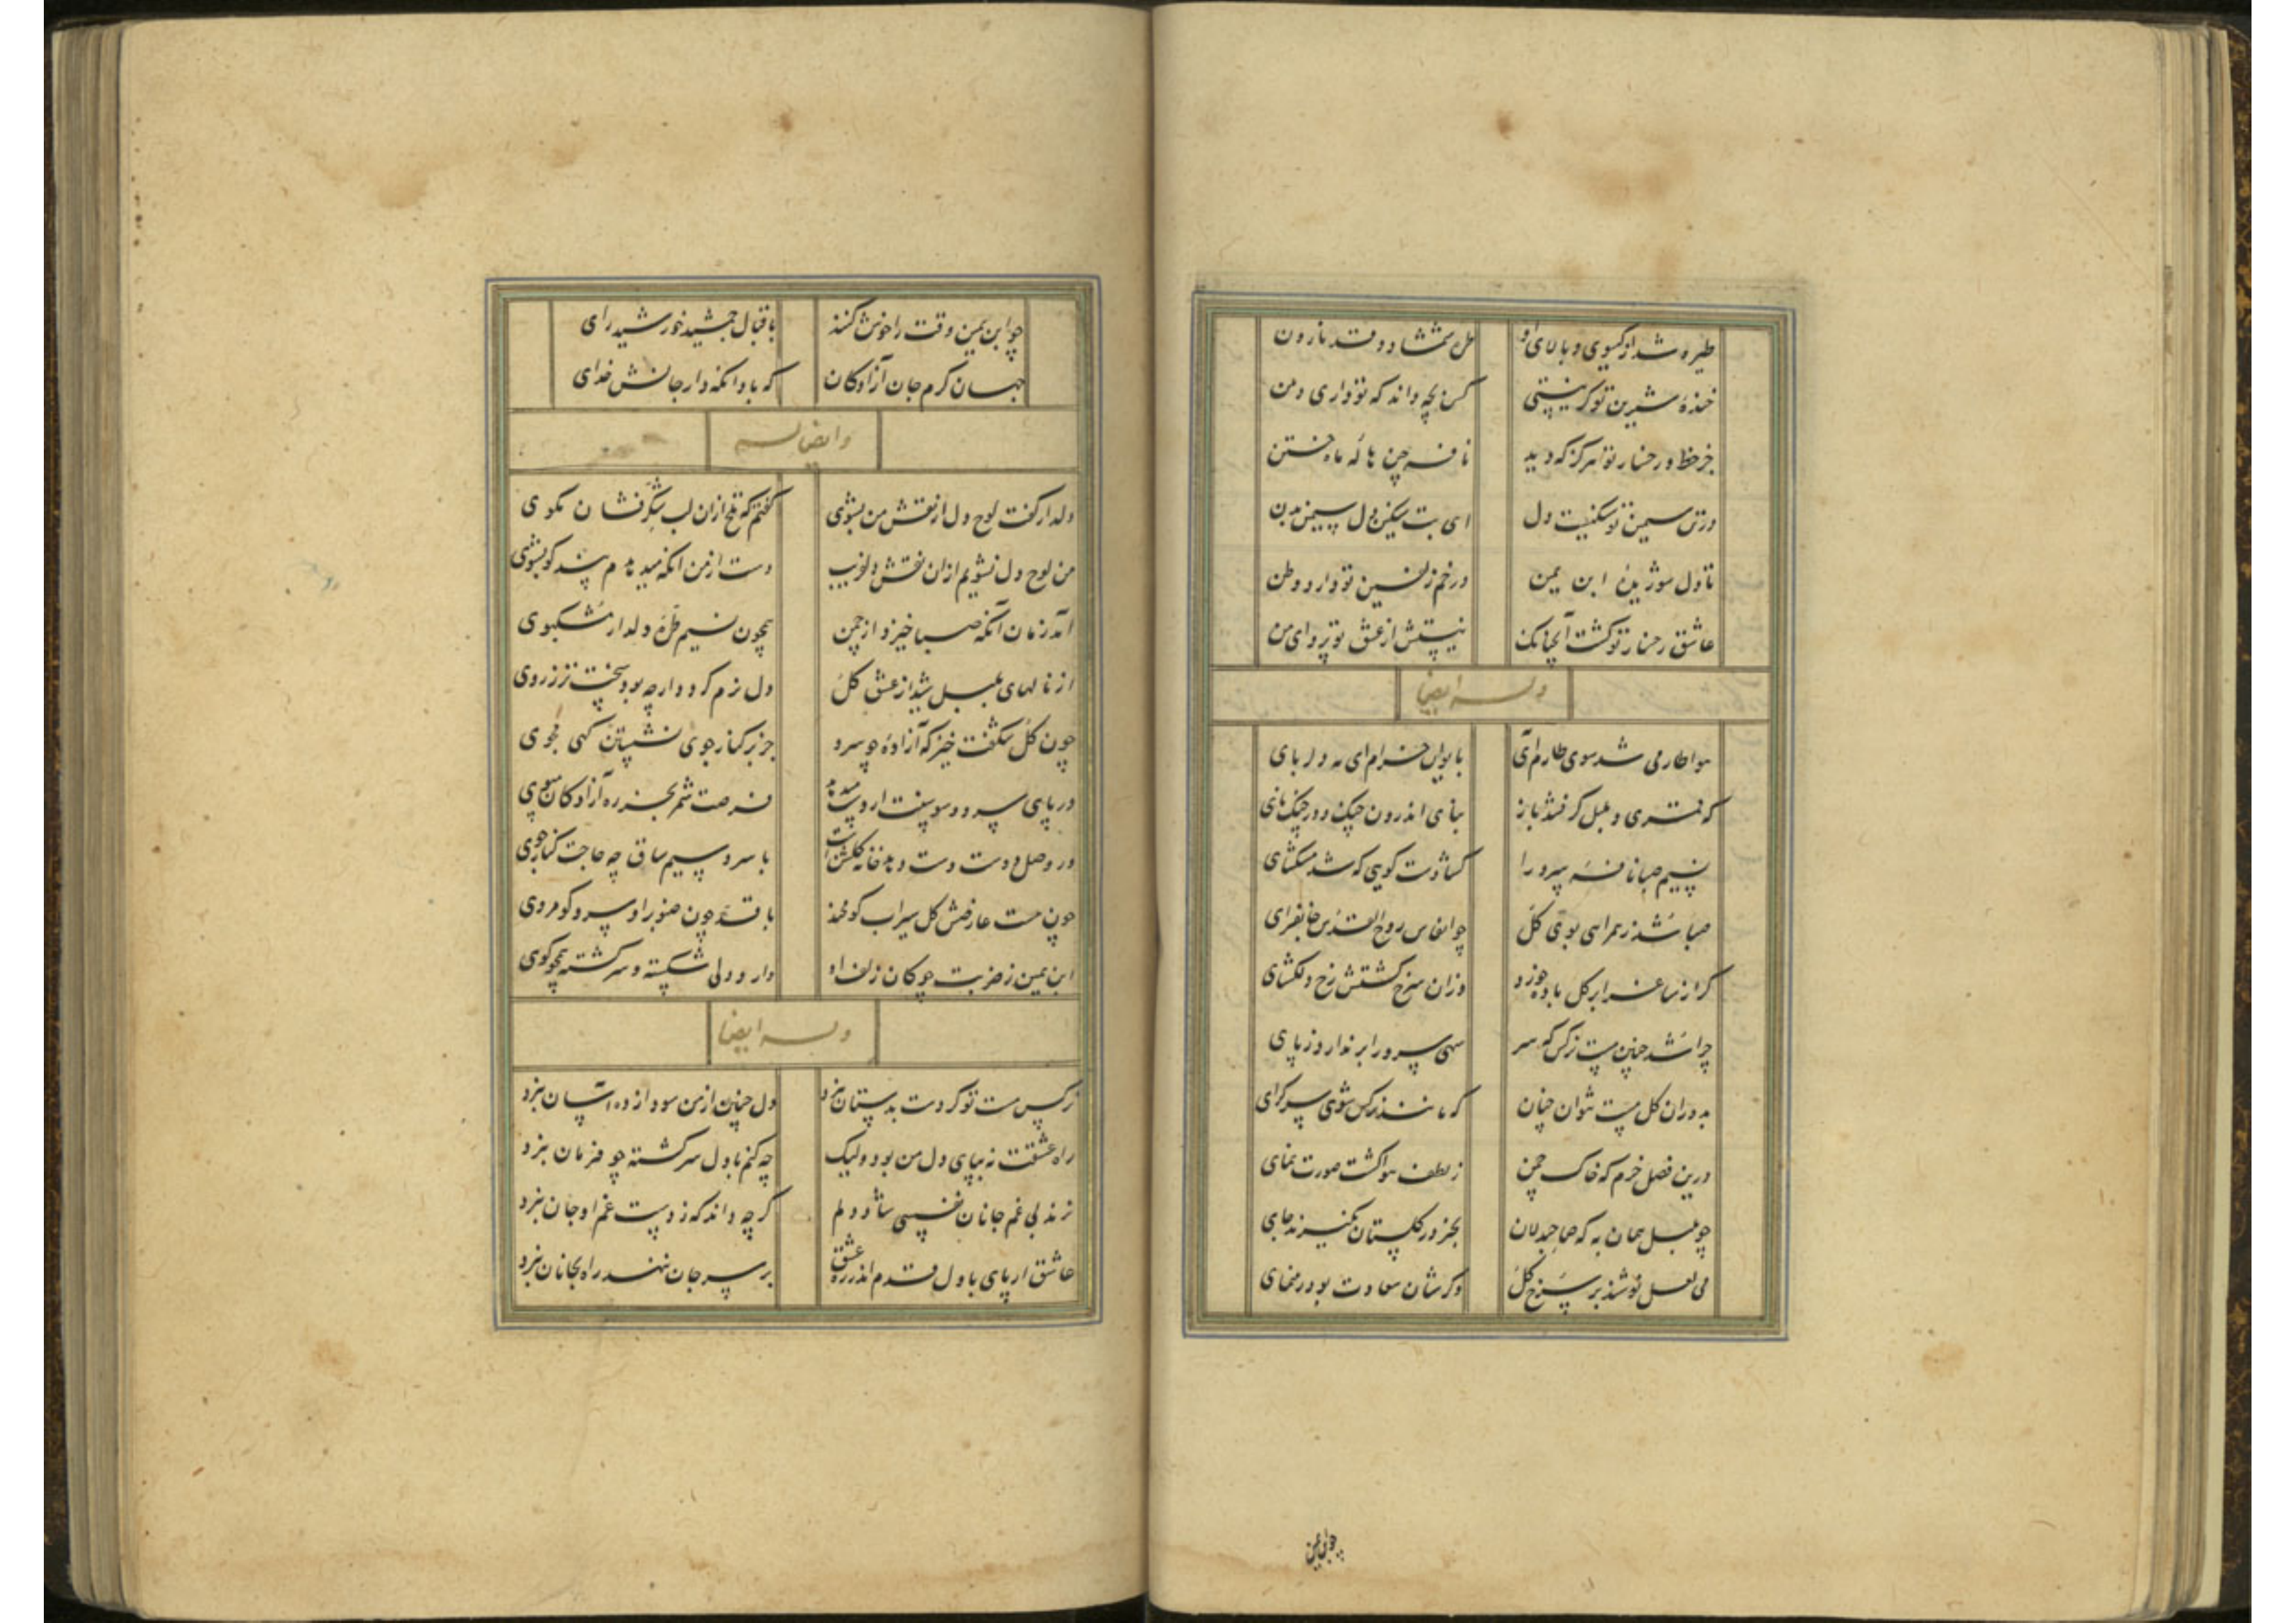 طیره شد از گیسوی و بالای او
ظل شمشاد و قد نارون
خندهٔ شیرین تو گریستی
کس بچه داند که تو داری دهن
جز خط و رخسار تو هرگز که دید
نافه چین هاله ماه ختن
در تن سیمین تو سنگیست دل
ای بت سنگین دل سیمین بدن
تا دل سوزیدهٔ ابن یمین
در خم زلفین تو دارد وطن
عاشق رخسار تو گشت آنچنانک
نیستش از عشق تو پروای من
وله ایضا
هوا طارمی شد سوی طارم آی
بایوان خرام ای مه دلربای
که قمتری و بلبل گرفتند باز
نوای اندرون چنک و در چنک نای
نسیم صبا نافه سرو را
گشادست گویی که شد مشکسای
صبا شد ز همراهی بوی گل
چو انفاس روح القدس جانفزای
گر از ساغر ابر گل باده خورد
وزان سرخ گشتش رخ دلگشای
چرا شد چنین مست نرگس که سر
سهی سرو را بر ندارد ز پای
بدوران گل مست نتوان چنان
که مانند نرگس شوی سرگرای
درین فصل خرم که خاک چمن
ز لطف هوا گشت صورت نمای
چو بلبل همان به که صاحبدلان
بجز در گلستان نگیرند جای
می لعل نوشند بر سرخ گل
وگر شان سعادت بود رهنمای
چو ابن یمین
چو ابن یمین وقت را خوش کنند
باقبال جمشید خورشید رای
جهان کرم جان آزادگان
که بادا نگه دار جانش خدای
وایضا له
دلدار گفت لوح دل از نقش من بشوی
گفتم که تلخ ازان لب شکرفشان مگوی
من لوح دل نشویم ازان نقش دلفریب
دست از من آنکه میدهدم پند گو بشوی
آمد زمان آنکه صبا خیزد از چمن
همچون نسیم طرهٔ دلدار مشکبوی
از نالهای بلبل شیدا ز عشق گل
دل نرم گردد ار چه بود سخت تر ز روی
چون گل شگفت خیز که آزادهٔ چو سرو
جز بر کنار جوی نشستن گهی مجوی
در پای سرو و سوسنت ار دست میدهد
فرصت شمر بجز ره آزادگان مپوی
در وصل دوست دست دهد خانه گلشن است
با سرو سیم ساق چه حاجت کنار جوی
چون هست عارضش گل سیراب گو مخند
با قد چون صنوبر او سرو گو مروی
ابن یمین ز ضربت چوگان زلف او
دارد دلی شکسته و سرگشته همچو گوی
وله ایضا
نرگس مست تو گر دست بدستان نبرد
دل چنین از من سودا زده آسان نبرد
راه عشقت نه بپای دل من بود ولیک
چه کنم با دل سرگشته چو فرمان نبرد
نزند بی غم جانان نفسی شاد دلم
گر چه داند که ز دست غم او جان نبرد
عاشق ار پای با دل قدم اندر ره عشق
بر سر جان ننهد راه بجانان نبرد